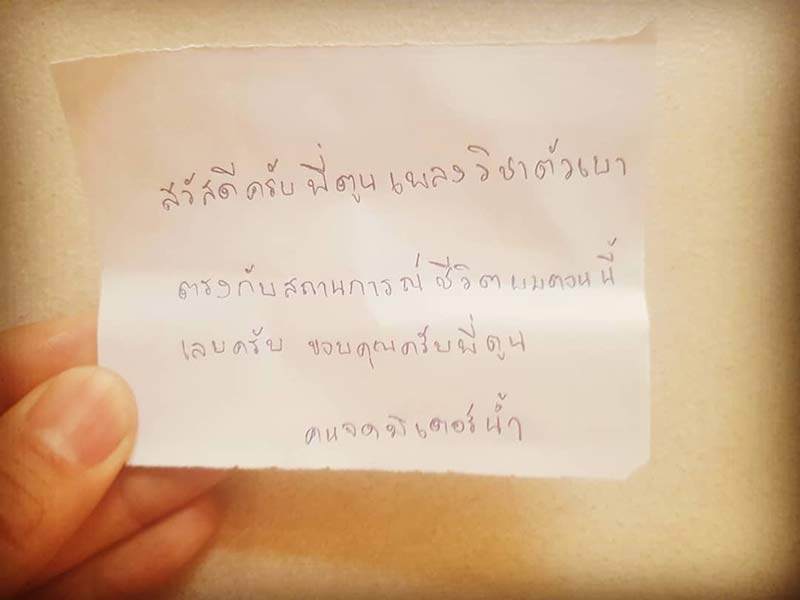 สวัสดีครับ พี่ตูน เพลง วิชาตัวเบา
ตรงกับสถานการณ์ ชีวิต ผมตอนนี้
เลยครับ ขอบคุณครับพี่ตูน
คนจดมิเตอร์น้ำ